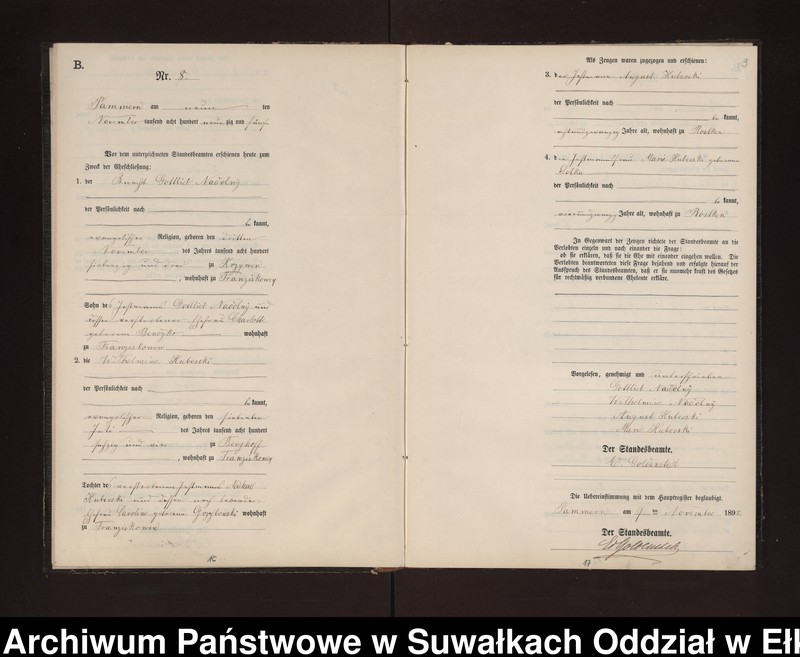 B.
Nr. 8.
Pammern am neun ten
November tausend acht hundert neunzig und fünf
Vor dem unterzeichneten Standesbeamten erschienen heute zum
Zweck der Eheschließung:
1. der Knecht Gottlieb Nadolny
der Persönlichkeit nach
be kannt,
evangelischer Religion, geboren den dritten
November des Jahres tausend acht hundert
siebenzig und drei zu
, wohnhaft zu Franziskowen
Sohn des Gottlieb Nadolny und
dessen verstorbener Ehefrau Charlotte
geborenen wohnhaft
zu Franziskowen
2. die Wilhelmine Kuberski
der Persönlichkeit nach
be kannt,
evangelischer Religion, geboren den siebenten
Juli des Jahres tausend acht hundert
sechzig und vier zu Berghoff
, wohnhaft zu Franziskowen
Tochter des verstorbenen
Kuberski und dessen noch lebender
Ehefrau Caroline geborene wohnhaft
zu Franziskowen
16
3
Als Zeugen waren zugezogen und erschienen:
3. der August Kuberski
der Persönlichkeit nach
be kannt,
Jahre alt, wohnhaft zu Rostken
4. die Marie Kuberski geborene
der Persönlichkeit nach
be kannt,
Jahre alt, wohnhaft zu Rostken
In Gegenwart der Zeugen richtete der Standesbeamte an die
Verlobten einzeln und nach einander die Frage:
ob sie erklären, daß sie die Ehe mit einander eingehen wollen. Die
Verlobten beantworteten diese Frage bejahend und erfolgte hierauf der
Ausspruch des Standesbeamten, daß er sie nunmehr kraft des Gesetzes
für rechtmäßig verbundene Eheleute erkläre.
Vorgelesen, genehmigt und unterschrieben
Gottlieb Nadolny
Wilhelmine Nadolny
August Kuberski
Marie Kuberski
Der Standesbeamte.
Die Uebereinstimmung mit dem Hauptregister beglaubigt.
Pammern am 9 ten November 1895
Der Standesbeamte.
17
Archiwum Państwowe w Suwałkach Oddział w Ełk